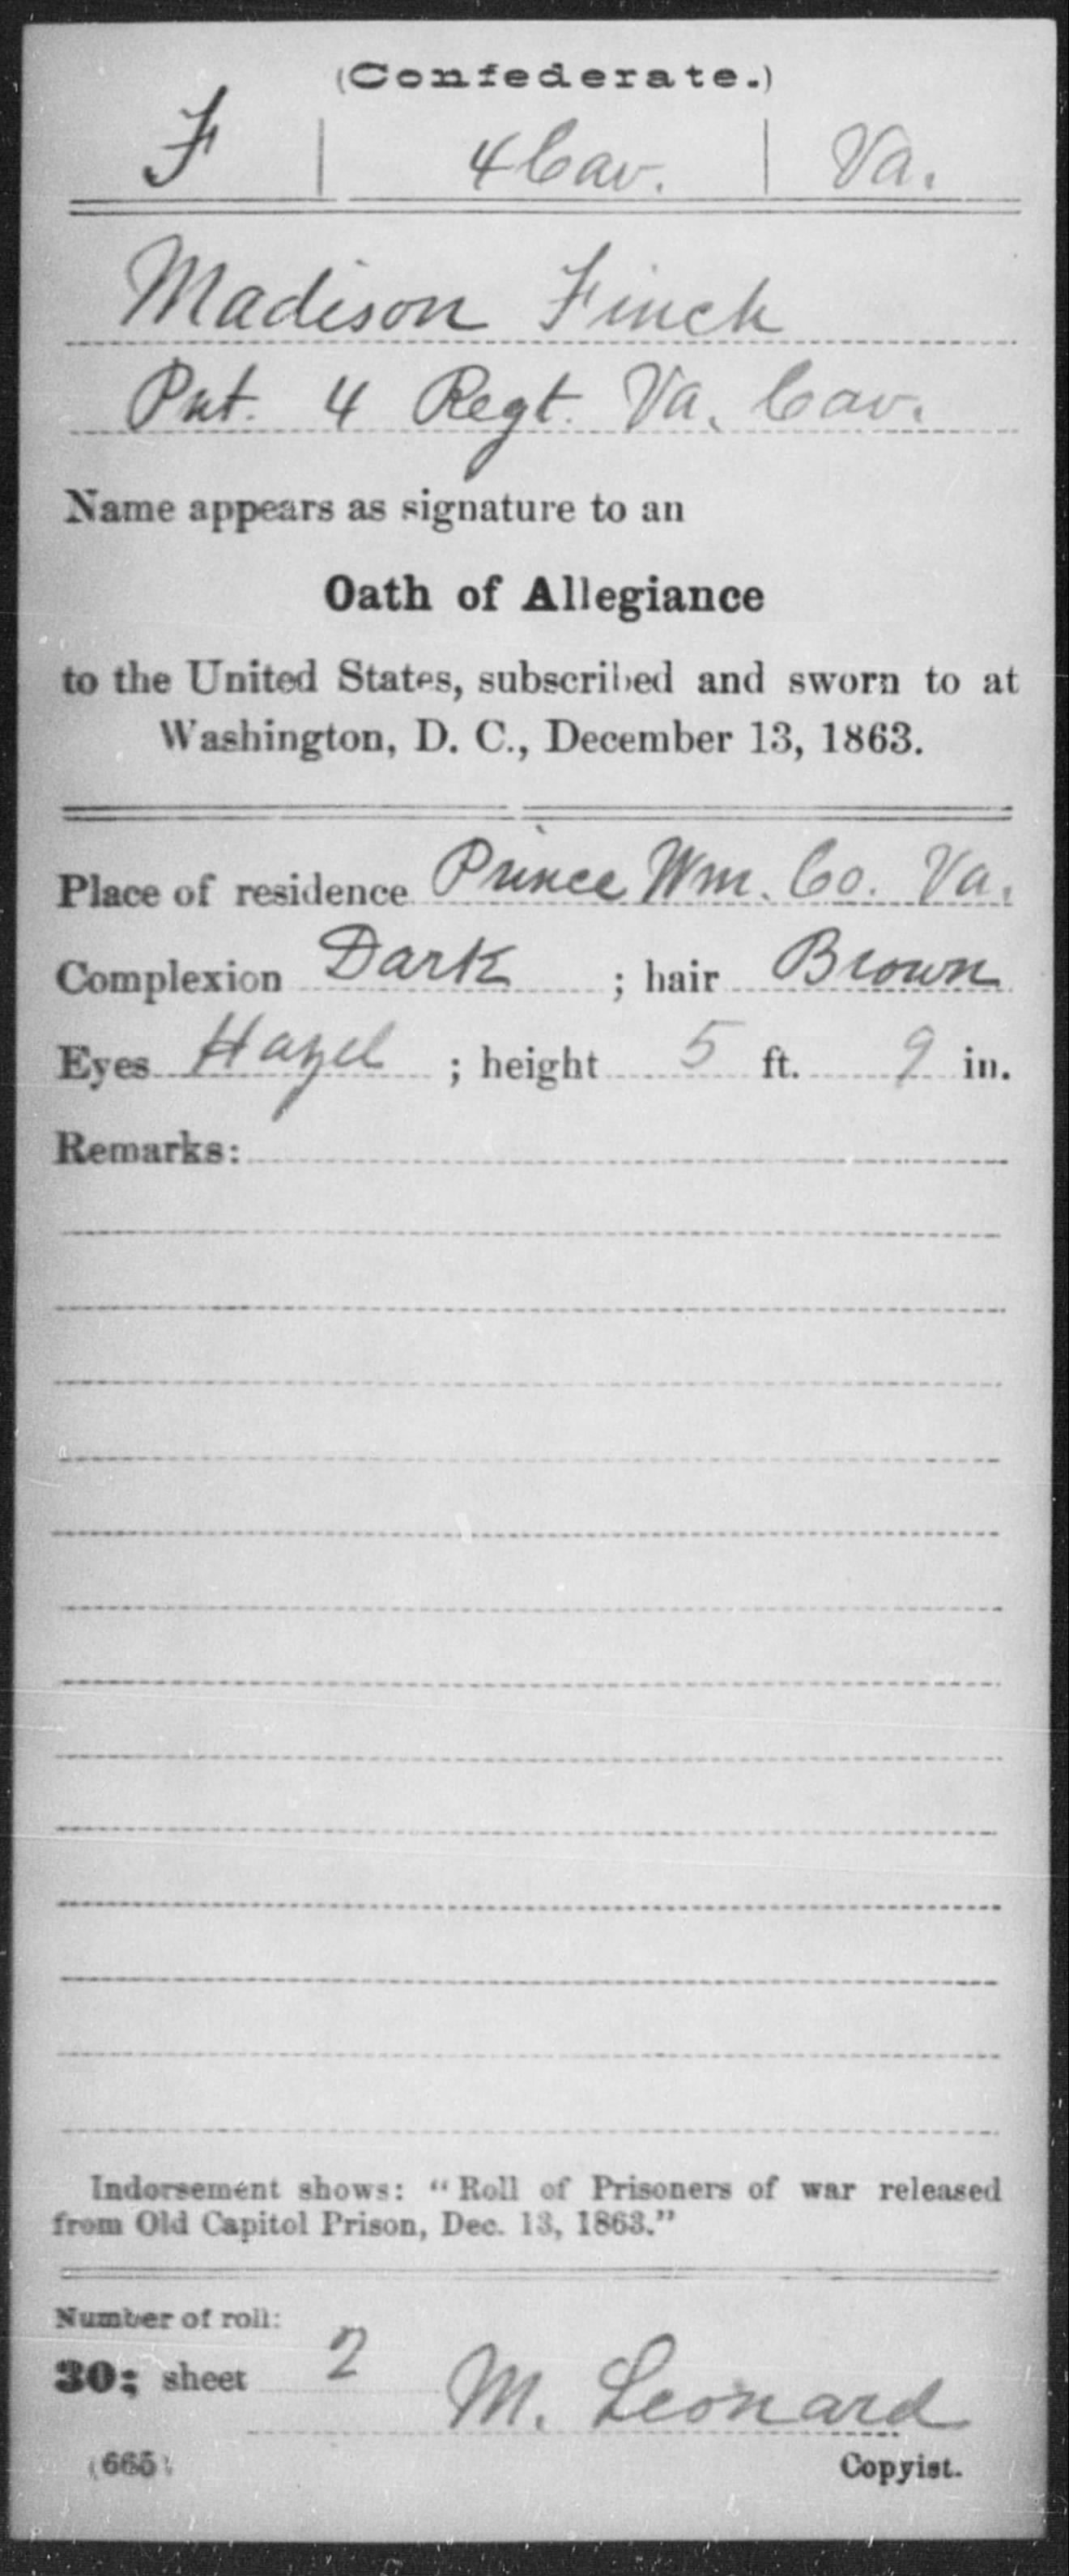 (Confederate.)
F | 4 Cav. | Va.
Madison Finch
Pvt. 4 Regt. Va. Cav.
Name appears as signature to an
Oath of Allegiance
to the United States, subscribed and sworn to at
Washington, D. C., December 13, 1863.
Place of residence Prince Wm. Co. Va.
Complexion Dark ; hair Brown
Eyes Hazel ; height 5 ft. 9 in.
Remarks:
Indorsement shows: "Roll of Prisoners of war released
from Old Capitol Prison, Dec. 13, 1863."
Number of roll:
30; sheet 2
M. Leonard
(665) Copyist.